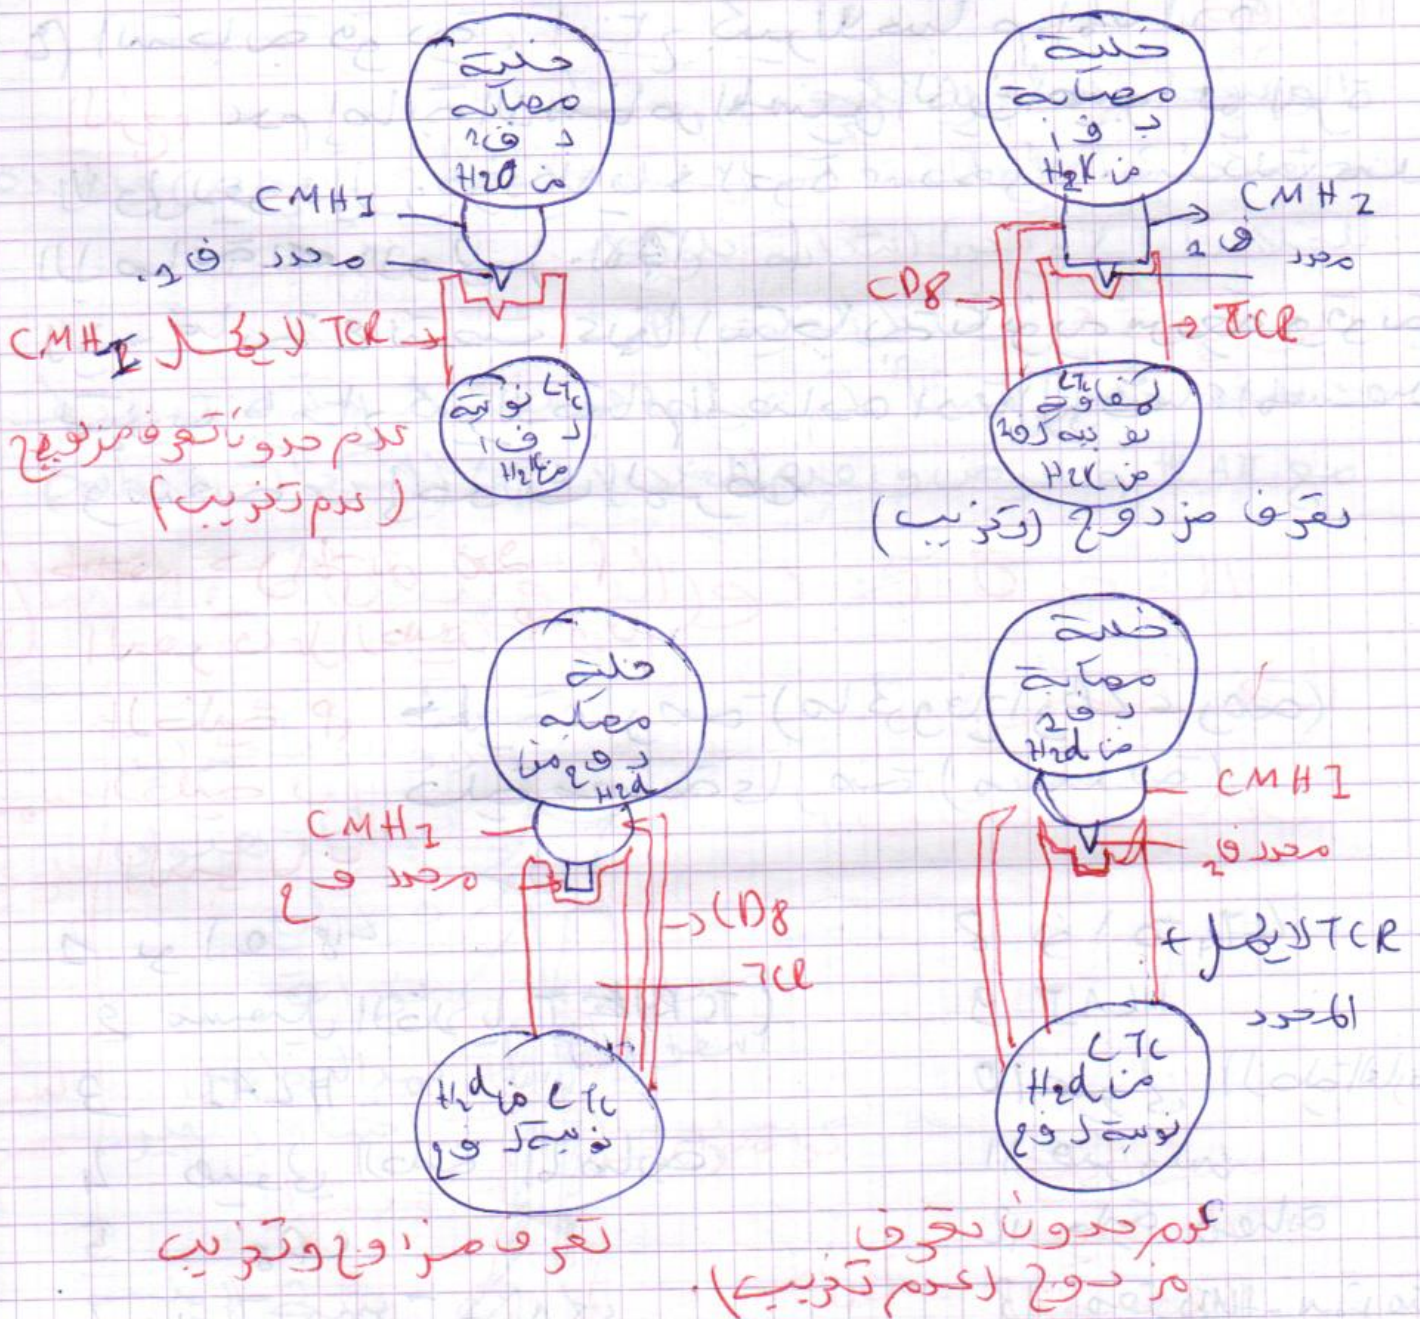 خلية
مصابة
ب ف1
من H2K
CMH2
محدد ف1
CD8
TCR
لمفاوية
LTc
نوعية لـ ف1
من H2K
تعرف مزدوج (تخريب)
خلية
مصابة
بـ ف1
من H2d
CMH1
محدد ف1.
TCR لا يكمل CMH1
LTc نوعية
لـ ف1
من H2K
عدم حدوث تعرف مزدوج
(عدم تخريب)
خلية
مصابة
بـ ف2
من H2d
CMH1
محدد ف2
TCR لا يكمل +
المحدد
LTc
من H2d
نوعية لـ فع
عدم حدوث تعرف
مزدوج (عدم تخريب).
خلية
مصابة
بـ فع من
H2d
CMH1
محدد فع
CD8
TCR
LTc من H2d
نوعية لـ فع
تعرف مزدوج وتخريب